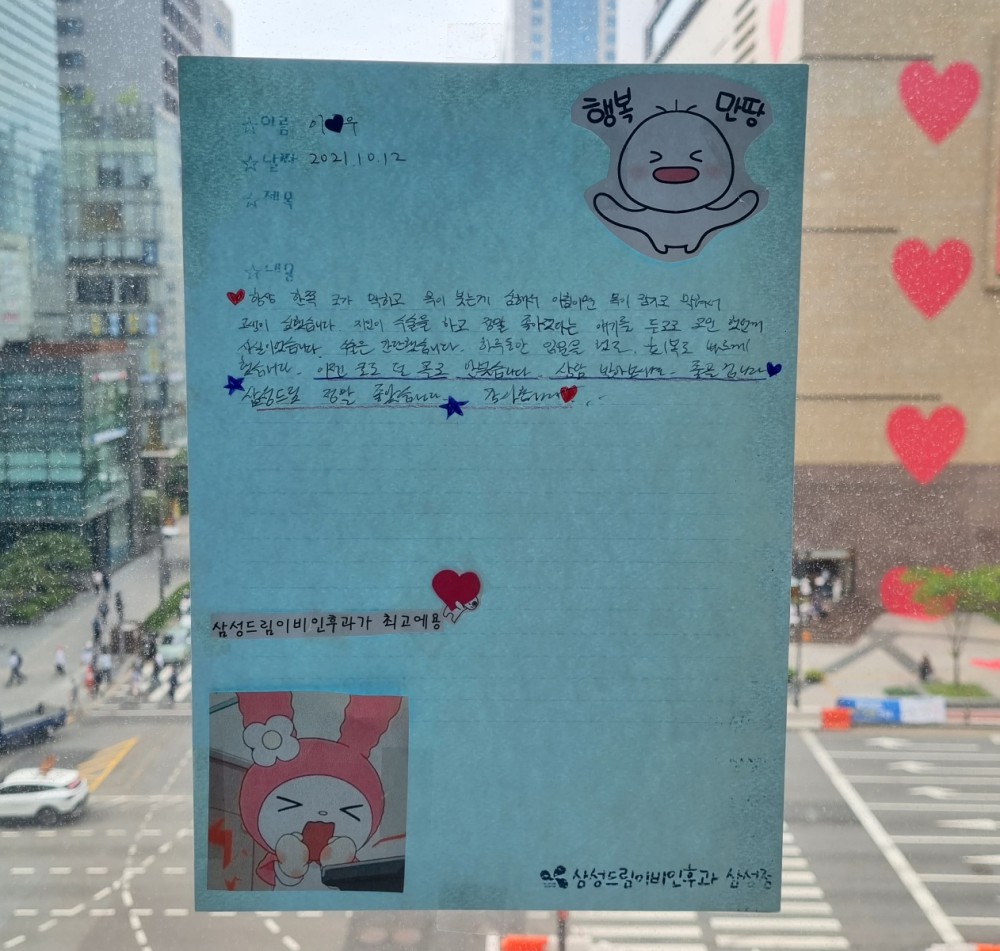 행복 만땅
☆이름 이♥우
☆날짜 2021.10.12
☆제목
☆내용
항상 한쪽 코가 막히고 목이 붓는게 심해서 아침이면 목이 잠기고 막혀서
고생이 심했습니다. 지인이 수술을 하고 정말 좋아졌다는 얘기를 듣고
사실이었습니다. 수술은 간단했습니다. 하루동안 입원을 했고, 회복도 빠르게
했습니다. 이젠 코도 또 목도 안붓습니다. 상담 받아보세요. 좋을겁니다
삼성드림 정말 좋았습니다 감사합니다
삼성드림이비인후과가 최고에용
삼성드림이비인후과